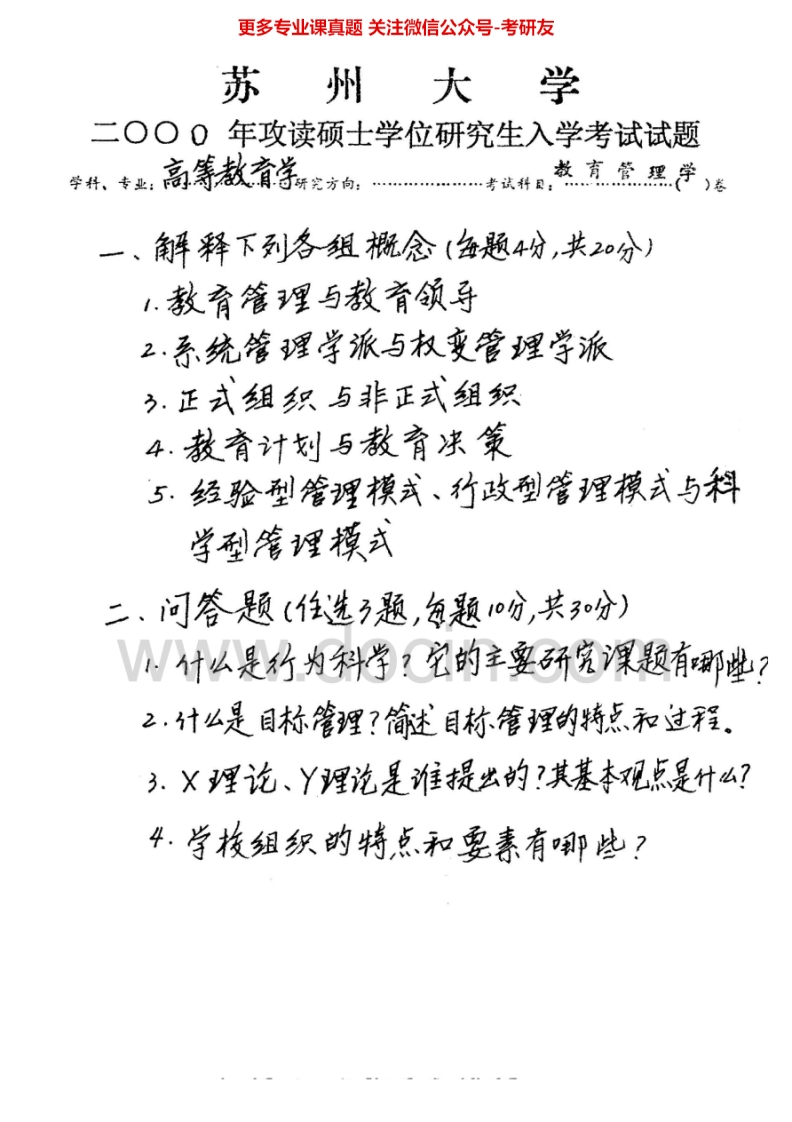 更多专业课真题 关注微信公众号-考研友
苏州大学
二〇〇〇年攻读硕士学位研究生入学考试试题
学科、专业：高等教育学 研究方向：………………考试科目：教育管理学（ ）卷
一、解释下列各组概念（每题4分，共20分）
1. 教育管理与教育领导
2. 系统管理学派与权变管理学派
3. 正式组织与非正式组织
4. 教育计划与教育决策
5. 经验型管理模式、行政型管理模式与科
学型管理模式
二、问答题（任选3题，每题10分，共30分）
www.docin.com
1. 什么是行为科学？它的主要研究课题有哪些？
2. 什么是目标管理？简述目标管理的特点和过程。
3. X理论、Y理论是谁提出的？其基本观点是什么？
4. 学校组织的特点和要素有哪些？